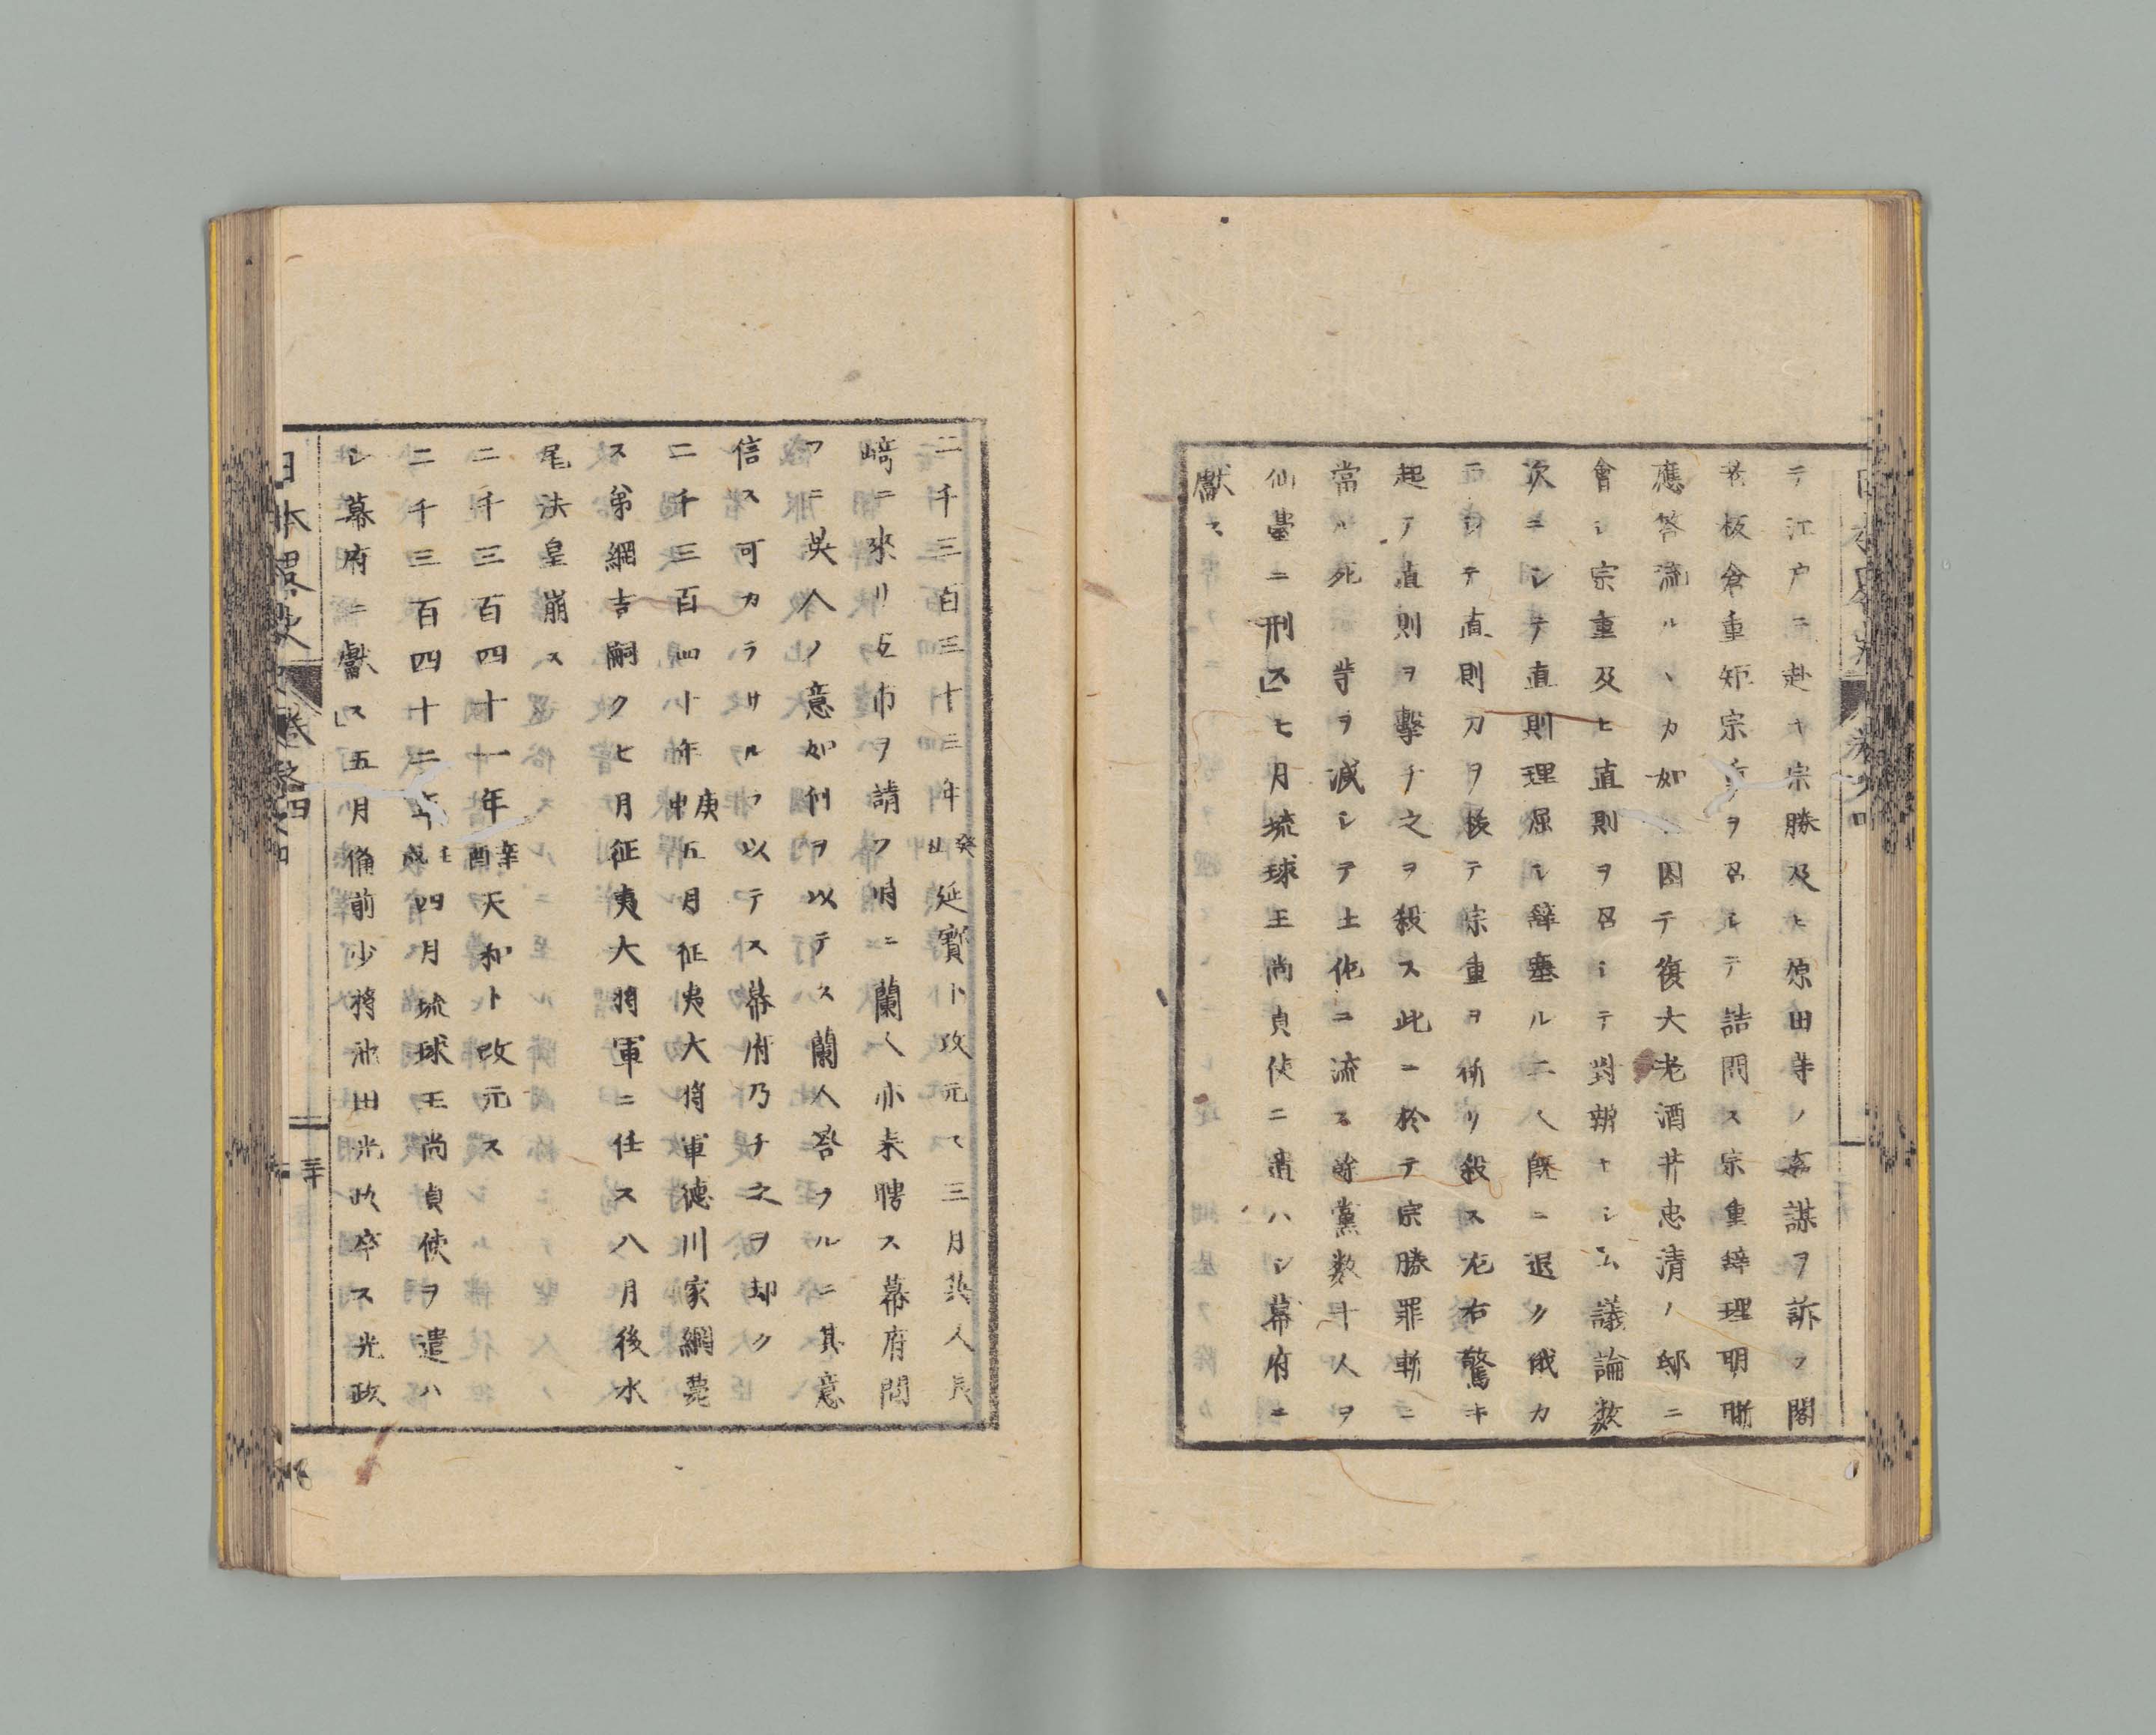 テ江戸ニ赴キ宗勝及ヒ原田等ノ姦謀ヲ訴フ閣
老板倉重矩宗重ヲ召シテ詰問ス宗重辞理明晰
應答流ルヽカ如シ因テ復大老酒井忠清ノ邸ニ
會シ宗重及ヒ直則ヲ召シテ對辨セシム議論数
次ニシテ直則理屈シ辞塞ル二人既ニ退ク俄カ
ニシテ直則刀ヲ抜テ宗重ヲ斫リ殺ス左右驚キ
起テ直則ヲ擊チ之ヲ殺ス此ニ於テ宗勝罪斬ニ
當ル死一等ヲ減シテ土佐ニ流ス餘黨数十人ヲ
仙臺ニ刑ス」七月琉球王尚貞使ヲ遣ハシ幕府ニ
獻ス
二千三百三十三年癸丑延寳ト改元ス三月英人長
﨑ニ來リ互市ヲ請フ時ニ蘭人亦来聘ス幕府問
フニ英人ノ意如何ヲ以テス蘭人答フルニ其意
信ス可カラサルヲ以テス幕府乃チ之ヲ却ク
二千三百四十年庚申五月征夷大将軍徳川家綱薨
ス弟綱吉嗣ク七月征夷大将軍ニ任ス八月後水
尾法皇崩ス
二千三百四十一年辛酉天和ト改元ス
二千三百四十二年壬戌四月琉球王尚貞使ヲ遣ハ
シ幕府ニ獻ス」五月備前少将池田光政卒ス光政
日本畧史 卷之四
三十